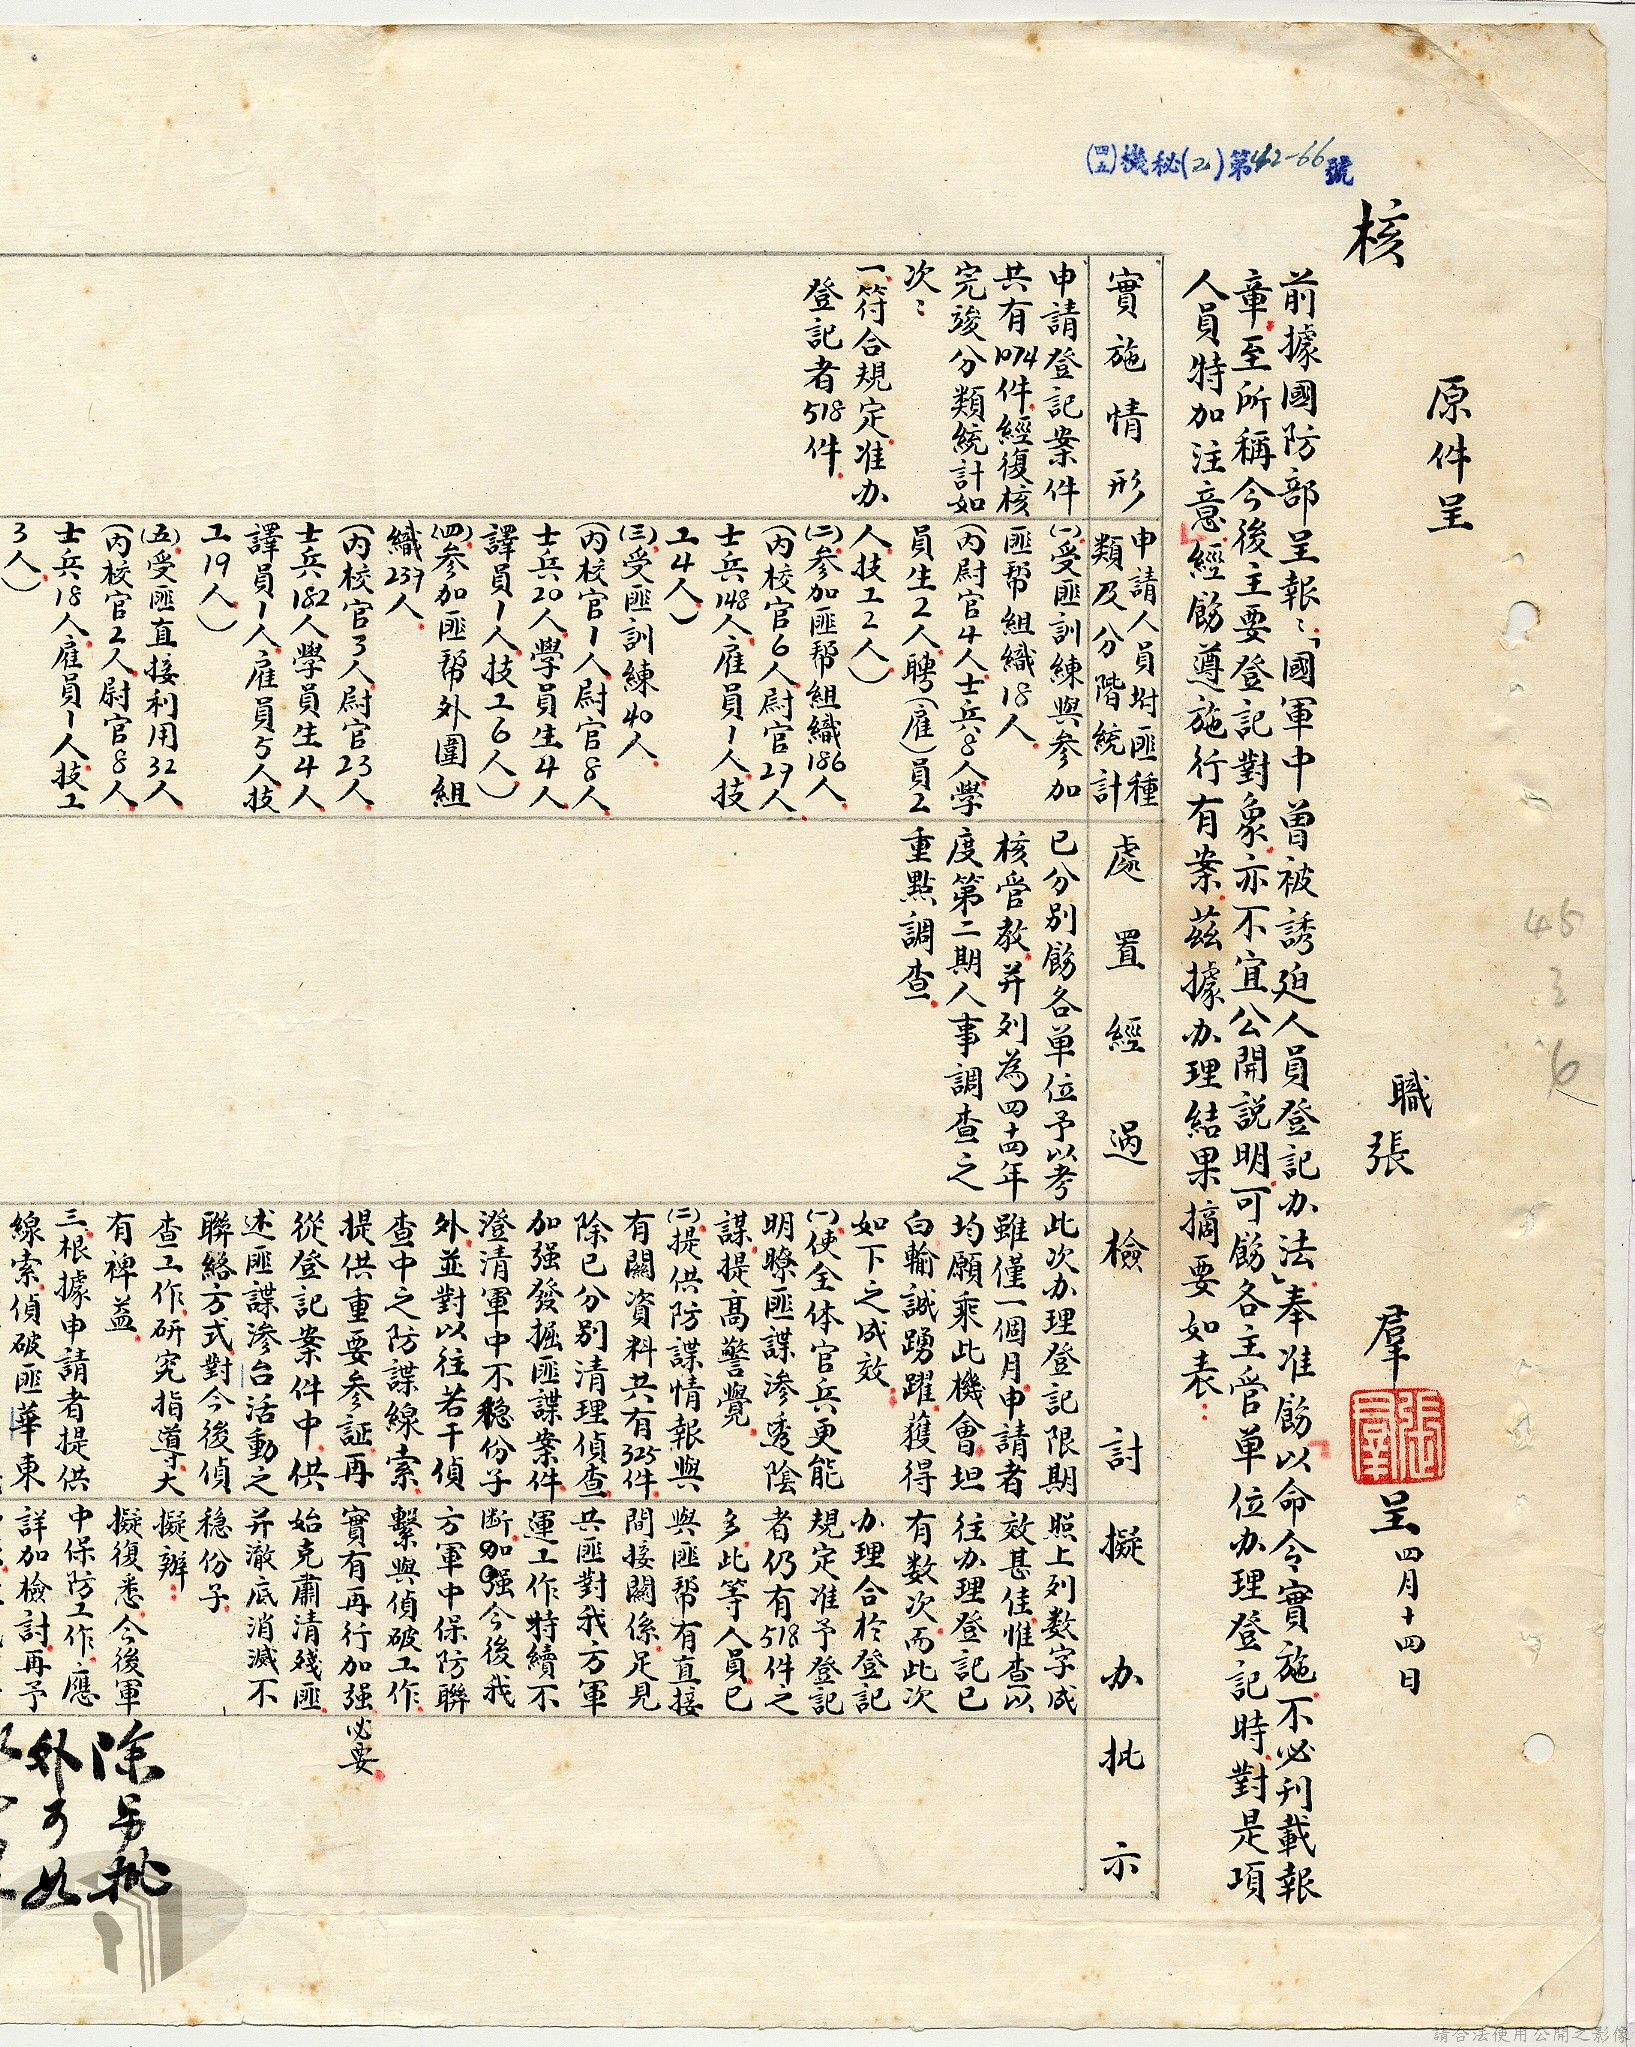 (四五)機秘(2)第42-66號
原件呈
核
職張羣呈四月十四日
張羣
前據國防部呈報:「國軍中曾被誘迫人員登記办法」奉准飭以命令實施不必刊載報
章至所稱今後主要登記對象亦不宜公開説明可飭各主管單位办理登記時對是項
人員特加注意經飭遵施行有案茲據办理結果摘要如表:
實施情形
申請登記案件
共有1074件經復核
完竣分類統計如
次:
一、符合規定准办
登記者518件
申請人員坿匪種
類及分階統計
(一)受匪訓練與參加
匪幫組織18人
(內尉官4人士兵8人學
員生2人聘(雇)員2
人技工2人)
(二)參加匪幫組織186人
(內校官6人尉官27人
士兵148人雇員1人技
工4人)
(三)受匪訓練40人
(內校官1人尉官8人
士兵20人學員生4人
譯員1人技工6人)
(四)參加匪幫外圍組
織237人
(內校官3人尉官23人
士兵182人學員生4人
譯員1人雇員5人技
工19人)
(五)受匪直接利用32人
(內校官2人尉官8人
士兵18人雇員1人技工
3人)
處置經過
已分別飭各單位予以考
核管教并列為四十四年
度第二期人事調查之
重點調查
檢討
此次办理登記限期
雖僅一個月申請者
均願乘此機會坦
白輸誠踴躍獲得
如下之成效
(一)使全体官兵更能
明瞭匪諜滲透陰
謀提高警覺
(二)提供防諜情報與
有關資料共有325件
除已分別清理偵查
加强發掘匪諜案件
澄清軍中不穩份子
外並對以往若干偵
查中之防諜線索
提供重要參証再
從登記案件中供
述匪諜滲台活動之
聯絡方式對今後偵
查工作研究指導大
有裨益
三、根據申請者提供
線索偵破匪華東
擬办
照上列数字成
效甚佳惟查以
往办理登記已
有数次而此次
办理合於登記
規定准予登記
者仍有518件之
多此等人員已
與匪幫有直接
間接關係足見
共匪對我方軍
運工作特續不
断加强今後我
方軍中保防聯
繫與偵破工作
實有再行加强必要
始克肅清殘匪
并澈底消滅不
穩份子
擬辦:
擬復悉今後軍
中保防工作應
詳加檢討再予
批示
除另批
外可如
45
3
6
請合法使用公開之影像